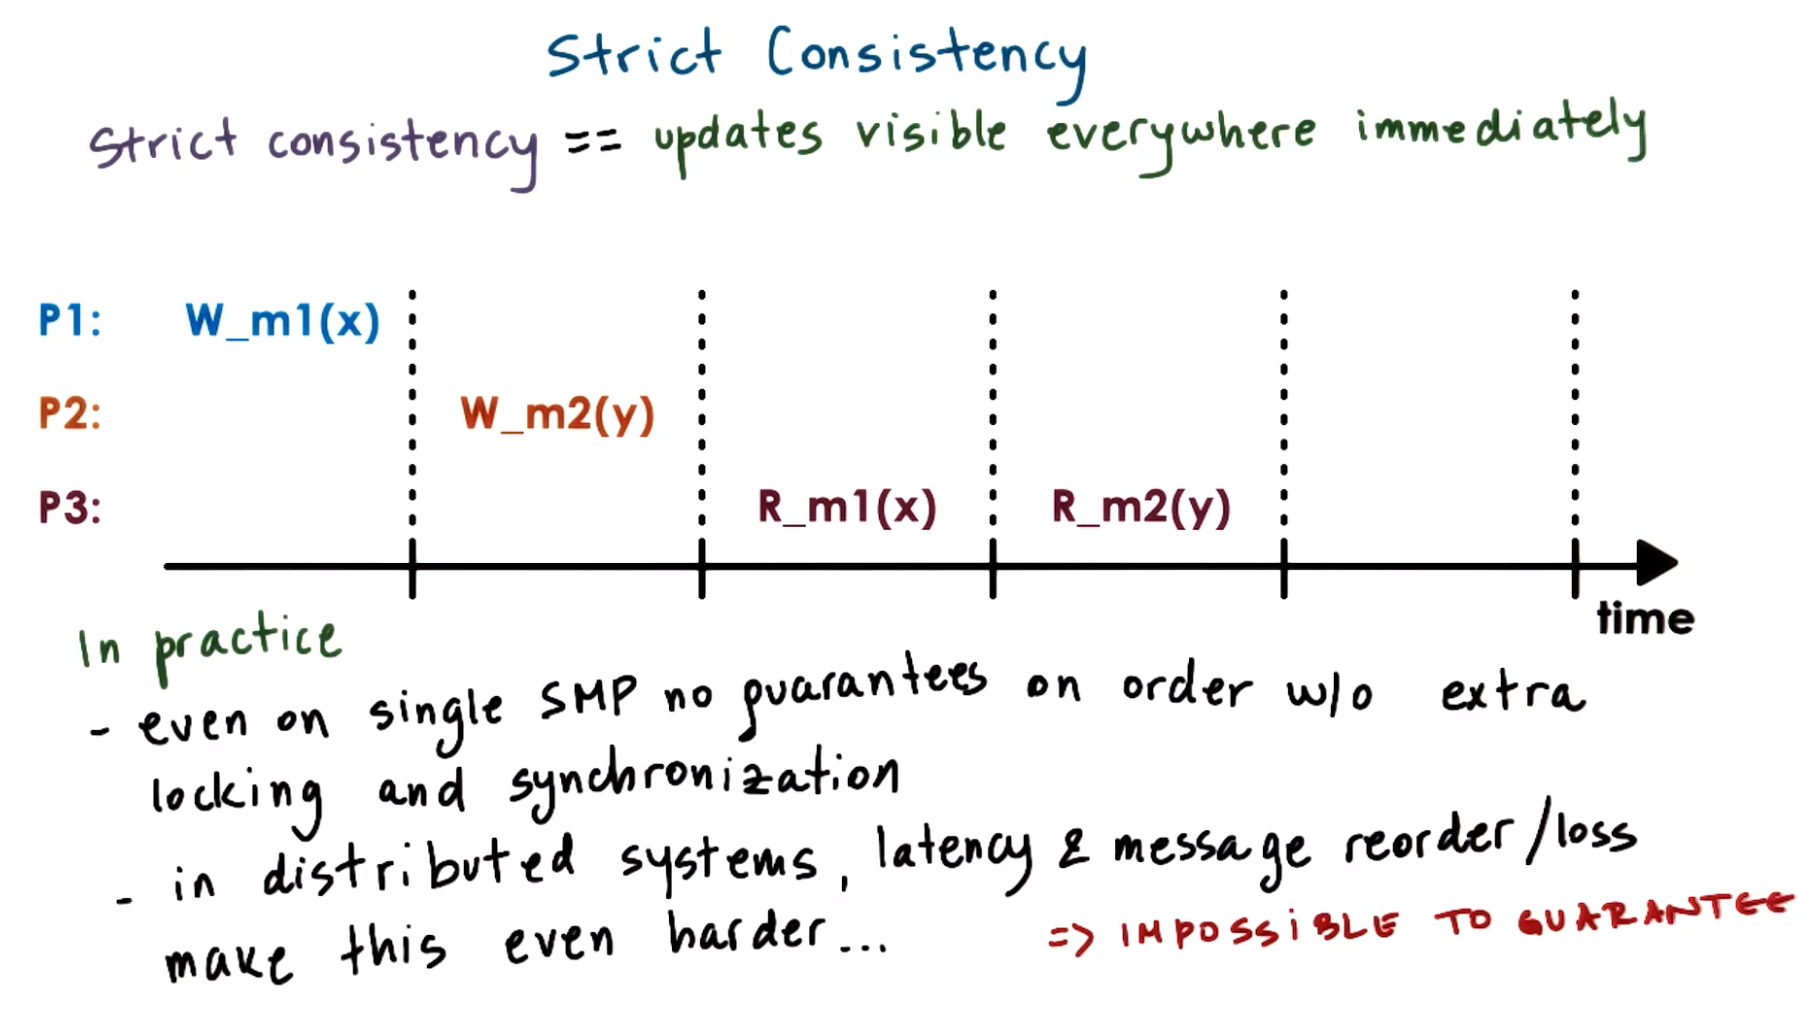 Strict Consistency
Strict consistency == updates visible everywhere immediately
P1: W_m1(x)
P2: W_m2(y)
P3: R_m1(x) R_m2(y)
time
In practice
- even on single SMP no guarantees on order w/o extra
locking and synchronization
- in distributed systems, latency & message reorder/loss
make this even harder...
=> IMPOSSIBLE TO GUARANTEE